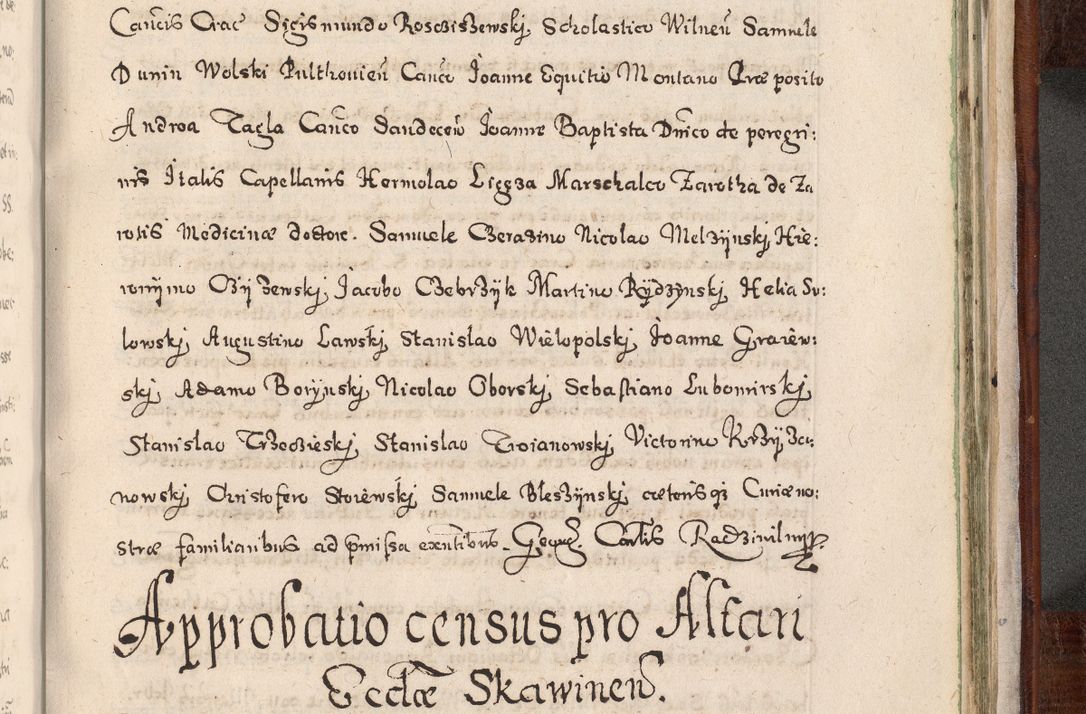 Cancis Crac Sigismundo Roscziszewskj, Scholastico Wilnen̄ Samuele
Dunin Wolski Pulthouien̄ Canco Joanne Equitio Montano Præposito
Andrea Tagla Canco Sandecen̄ Joanne Baptista Dnico de peregri:
nis Italis Capellanis Hermolao Ligęza Marschalco Zarotha de Za
rotis Medicinæ doctore. Samuele Czerazino Nicolao Melzynskj, Hie:
ronijmo Czyżewskj, Jacobo Czebrzyk Martino Rydzynskj, Helia Su:
lowskj, Augustino Lawskj, Stanislao Wielopolskj, Joanne Graiew:
skj, Adamo Borynskj, Nicolao Oborskj, Sebastiano Lubomirskj,
Stanislao Trzecieskj, Stanislao Troianowskj, Victorino Krzyża:
nowskj, Christofero Storewskj, Samuele Bleszynskj, cæterisqz Curiæ no:
stræ familiaribus ad pmissa exn̄tibus. Georg. Carlis Radziwil mpp.
Approbatio census pro Altari
Ecclæ Skawinen̄.